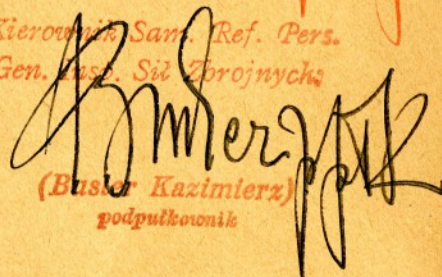 Kierownik Sam. Ref. Pers.
Gen. Insp. Sił Zbrojnych:
Busler ppłk
(Busler Kazimierz)
podpułkownik